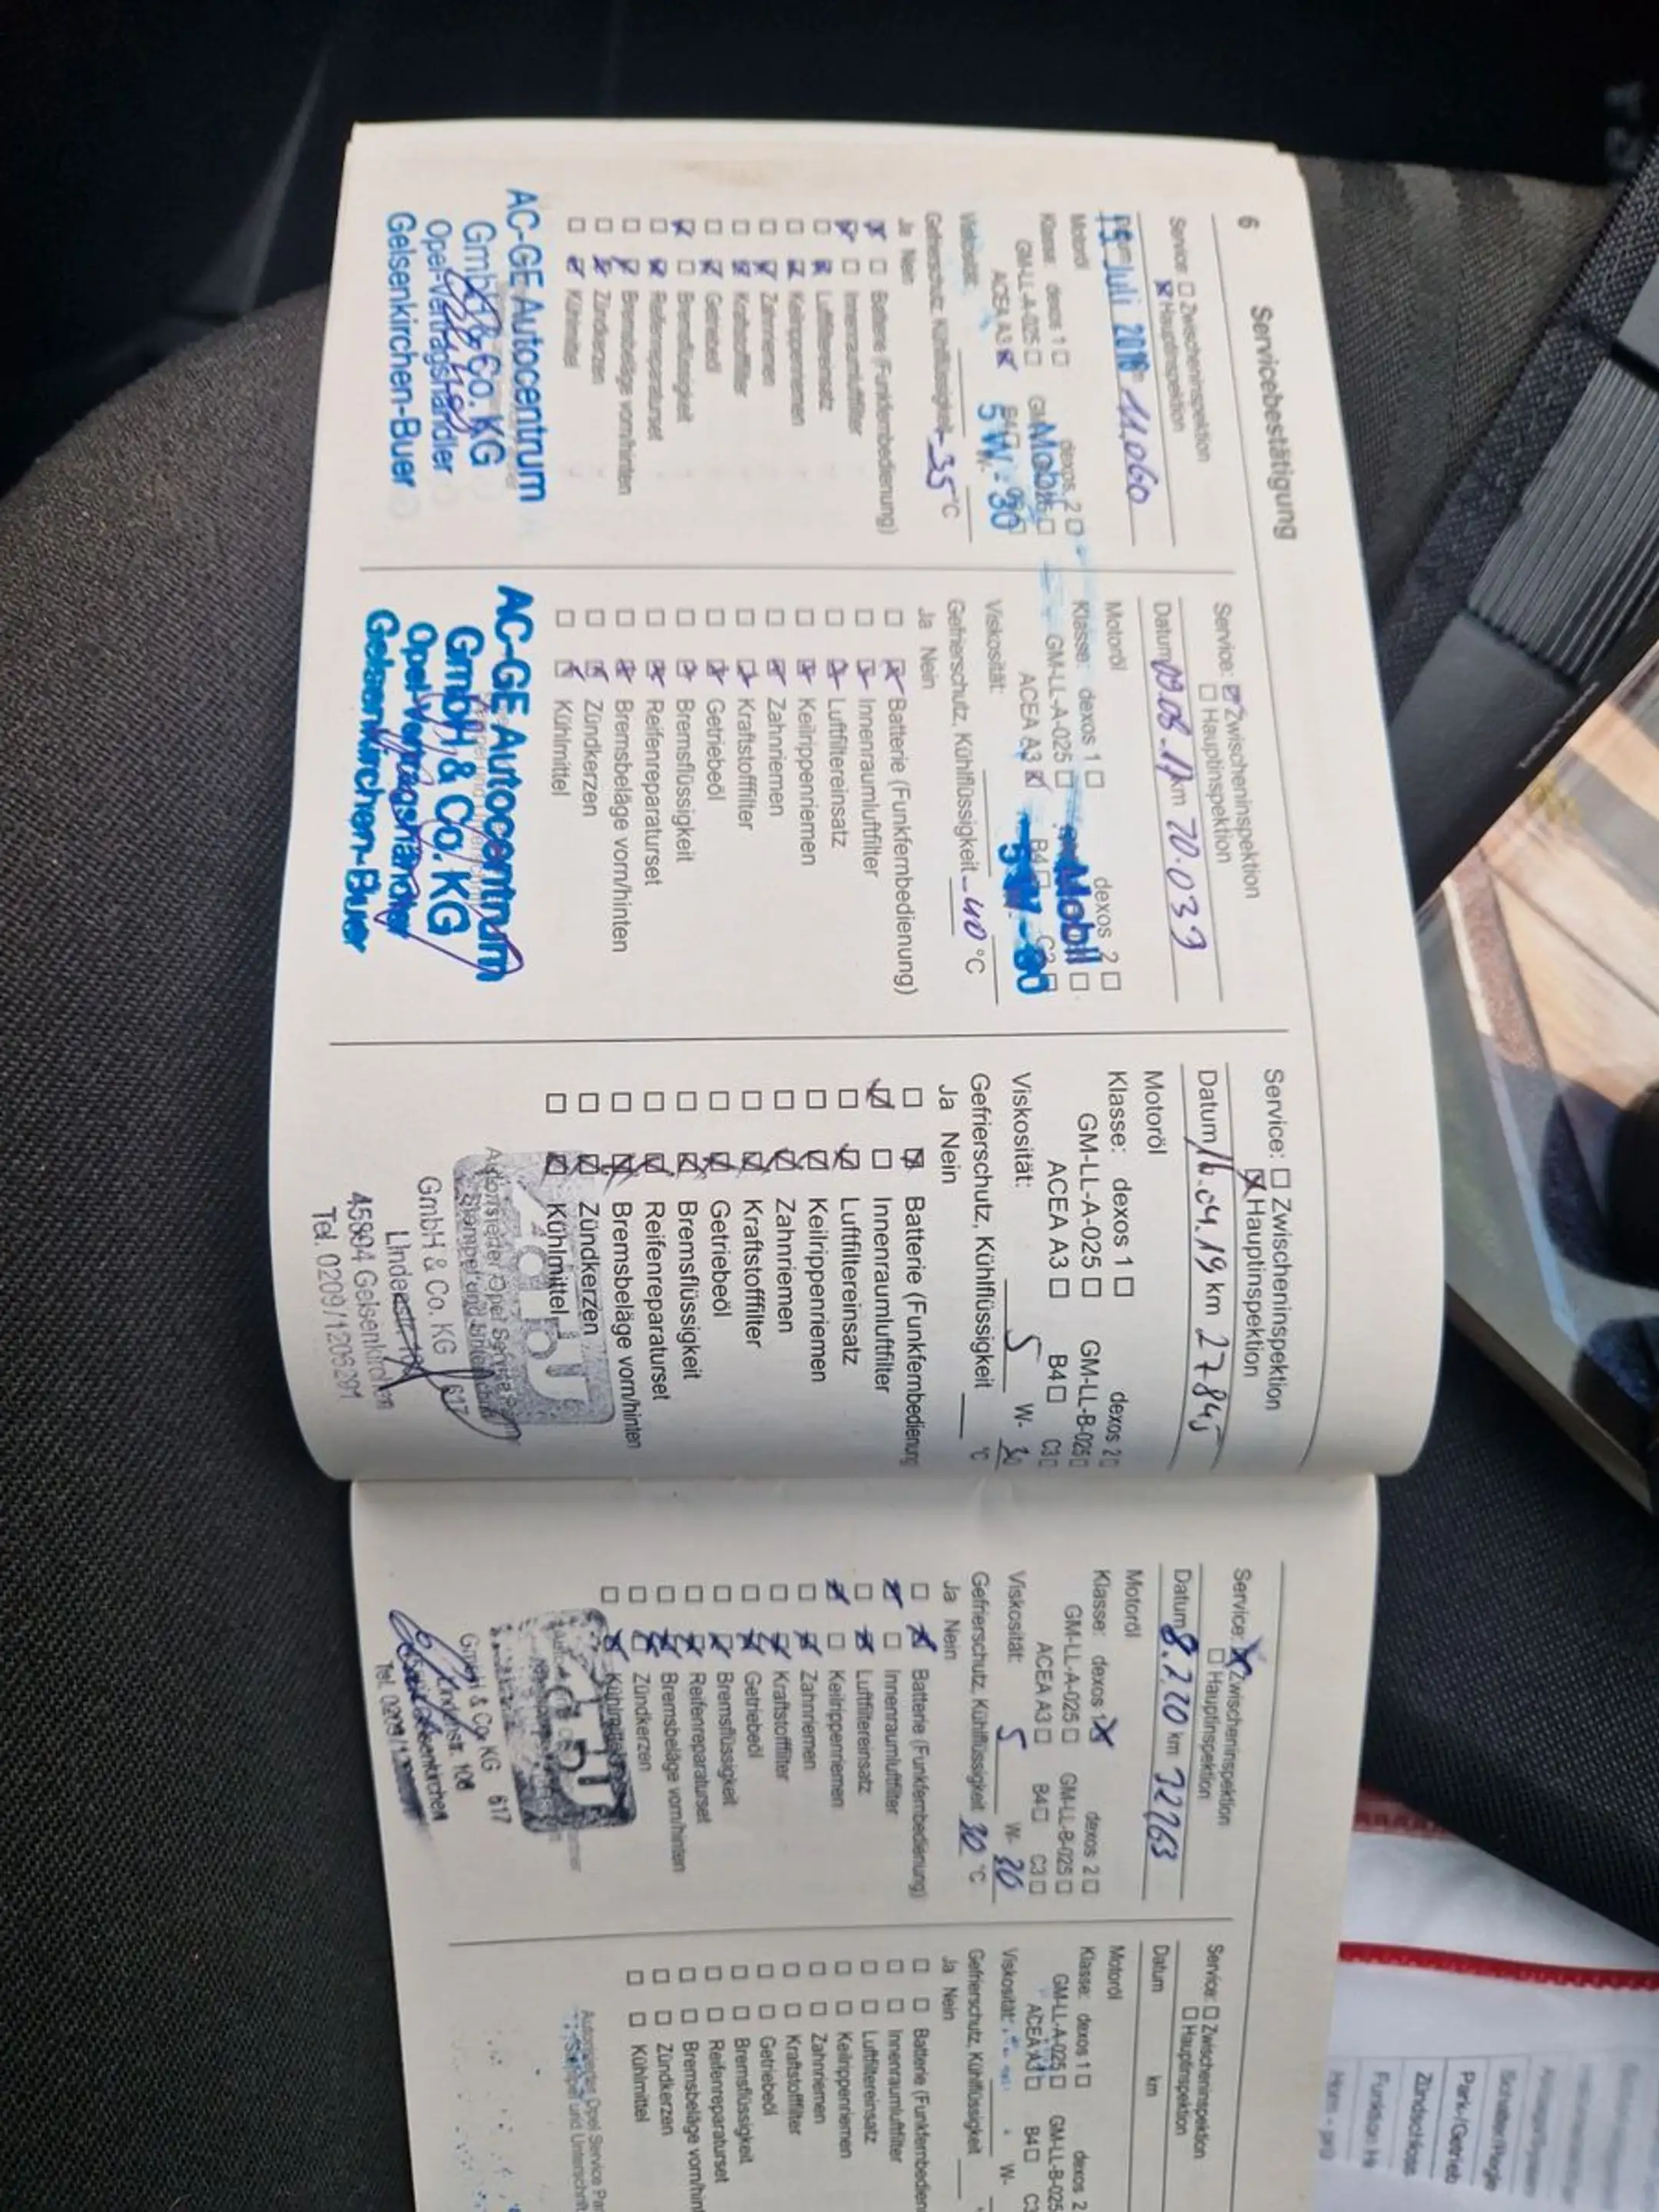 6 Servicebestätigung
Service: Zwischeninspektion
Hauptinspektion
15. Juli 2016 11.060
Motoröl
Klasse: dexos 1 dexos 2
GM-LL-A-025
Mobil
ACEA A3 B4
Viskosität: 5W-30
Gefrierschutz, Kühlflüssigkeit -35 °C
Ja Nein
Batterie (Funkfernbedienung)
Innenraumluftfilter
Luftfiltereinsatz
Keilrippenriemen
Zahnriemen
Kraftstofffilter
Getriebeöl
Bremsflüssigkeit
Reifenreparaturset
Bremsbeläge vorn/hinten
Zündkerzen
Kühlmittel
AC-GE Autocentrum
GmbH & Co. KG
Opel-Vertragshändler
Gelsenkirchen-Buer
Service: Zwischeninspektion
Hauptinspektion
Datum 09.08.17 km 20.039
Motoröl
Klasse: dexos 1 dexos 2
GM-LL-A-025
Mobil
ACEA A3 B4 C3
Viskosität: 5W-30
Gefrierschutz, Kühlflüssigkeit -40 °C
Ja Nein
Batterie (Funkfernbedienung)
Innenraumluftfilter
Luftfiltereinsatz
Keilrippenriemen
Zahnriemen
Kraftstofffilter
Getriebeöl
Bremsflüssigkeit
Reifenreparaturset
Bremsbeläge vorn/hinten
Zündkerzen
Kühlmittel
AC-GE Autocentrum
GmbH & Co. KG
Opel-Vertragshändler
Gelsenkirchen-Buer
Service: Zwischeninspektion
Hauptinspektion
Datum 16.04.19 km 27845
Motoröl
Klasse: dexos 1 dexos 2
GM-LL-A-025 GM-LL-B-025
ACEA A3 B4 C3
Viskosität: 5 W- 30
Gefrierschutz, Kühlflüssigkeit °C
Ja Nein
Batterie (Funkfernbedienung
Innenraumluftfilter
Luftfiltereinsatz
Keilrippenriemen
Zahnriemen
Kraftstofffilter
Getriebeöl
Bremsflüssigkeit
Reifenreparaturset
Bremsbeläge vorn/hinten
Zündkerzen
Kühlmittel
Stempel und
GmbH & Co. KG 617
45894 Gelsenkirchen
Tel. 0209/1206291
Service: Zwischeninspektion
Hauptinspektion
Datum 8.7.20 km 32763
Motoröl
Klasse: dexos 1 dexos 2
GM-LL-A-025 GM-LL-B-025
ACEA A3 B4 C3
Viskosität: 5 W- 20
Gefrierschutz, Kühlflüssigkeit 30 °C
Ja Nein
Batterie (Funkfernbedienung)
Innenraumluftfilter
Luftfiltereinsatz
Keilrippenriemen
Zahnriemen
Kraftstofffilter
Getriebeöl
Bremsflüssigkeit
Reifenreparaturset
Bremsbeläge vorn/hinten
Zündkerzen
Kühlmittel
GmbH & Co. KG 617
Service: Zwischeninspektion
Hauptinspektion
Datum km
Motoröl
Klasse: dexos 1 dexos 2
GM-LL-A-025 GM-LL-B-025
ACEA A3 B4 C3
Viskosität: W-
Gefrierschutz, Kühlflüssigkeit
Ja Nein
Batterie (Funkfernbedien
Innenraumluftfilter
Luftfiltereinsatz
Keilrippenriemen
Zahnriemen
Kraftstofffilter
Getriebeöl
Bremsflüssigkeit
Reifenreparaturset
Bremsbeläge vorn/hint
Zündkerzen
Kühlmittel
Autorisierter Opel Service Par
Stempel und Unterschrift
Park-/Getrieb
Zündschloss